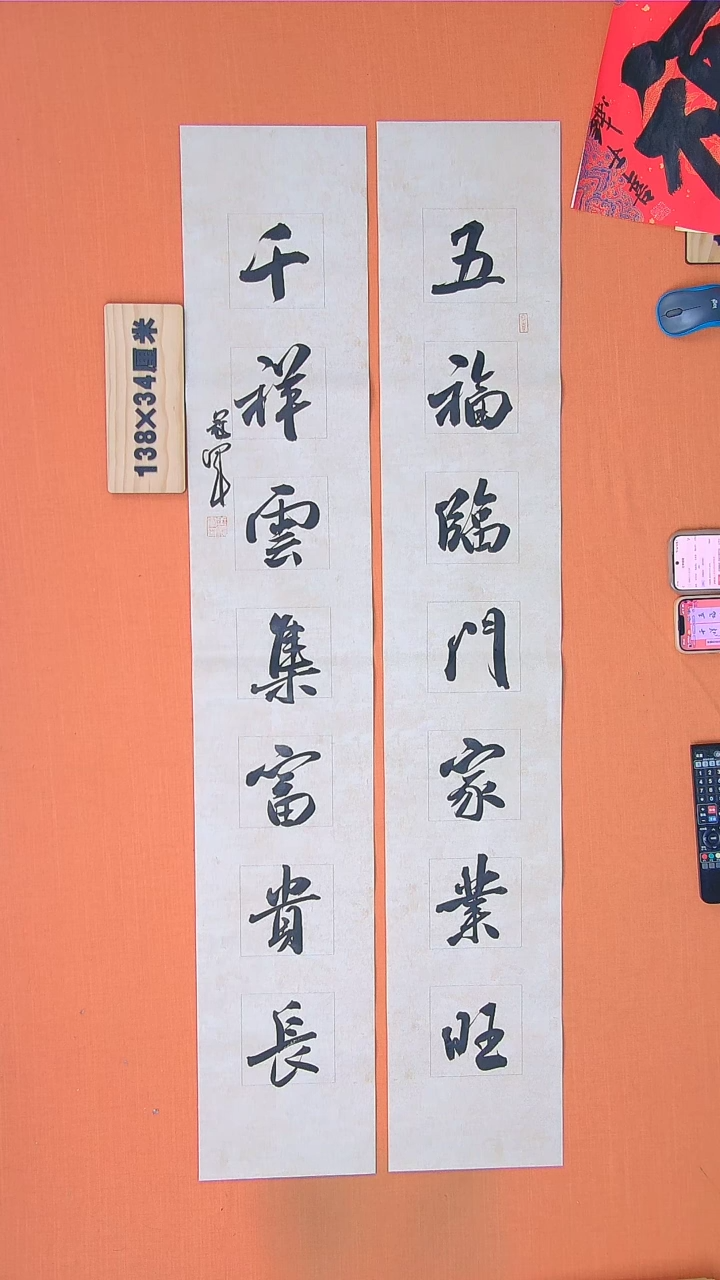 五福臨門家業旺
千祥雲集富貴長
138×34厘米